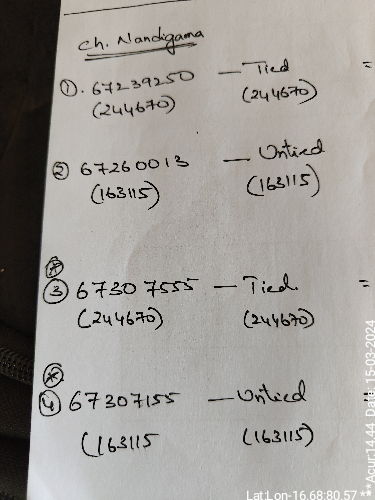 Ch. Nandigama
①. 67239250 — Tied =
(244670) (244670)
② 67260013 — Untied
(163115) (163115)
③ 67307555 — Tied. =
(244670) (244670)
④ 67307155 — Untied =
(163115 (163115)
Lat Lon-16.68:80.57 ***Acur:14.44 Date: 15-03-2024